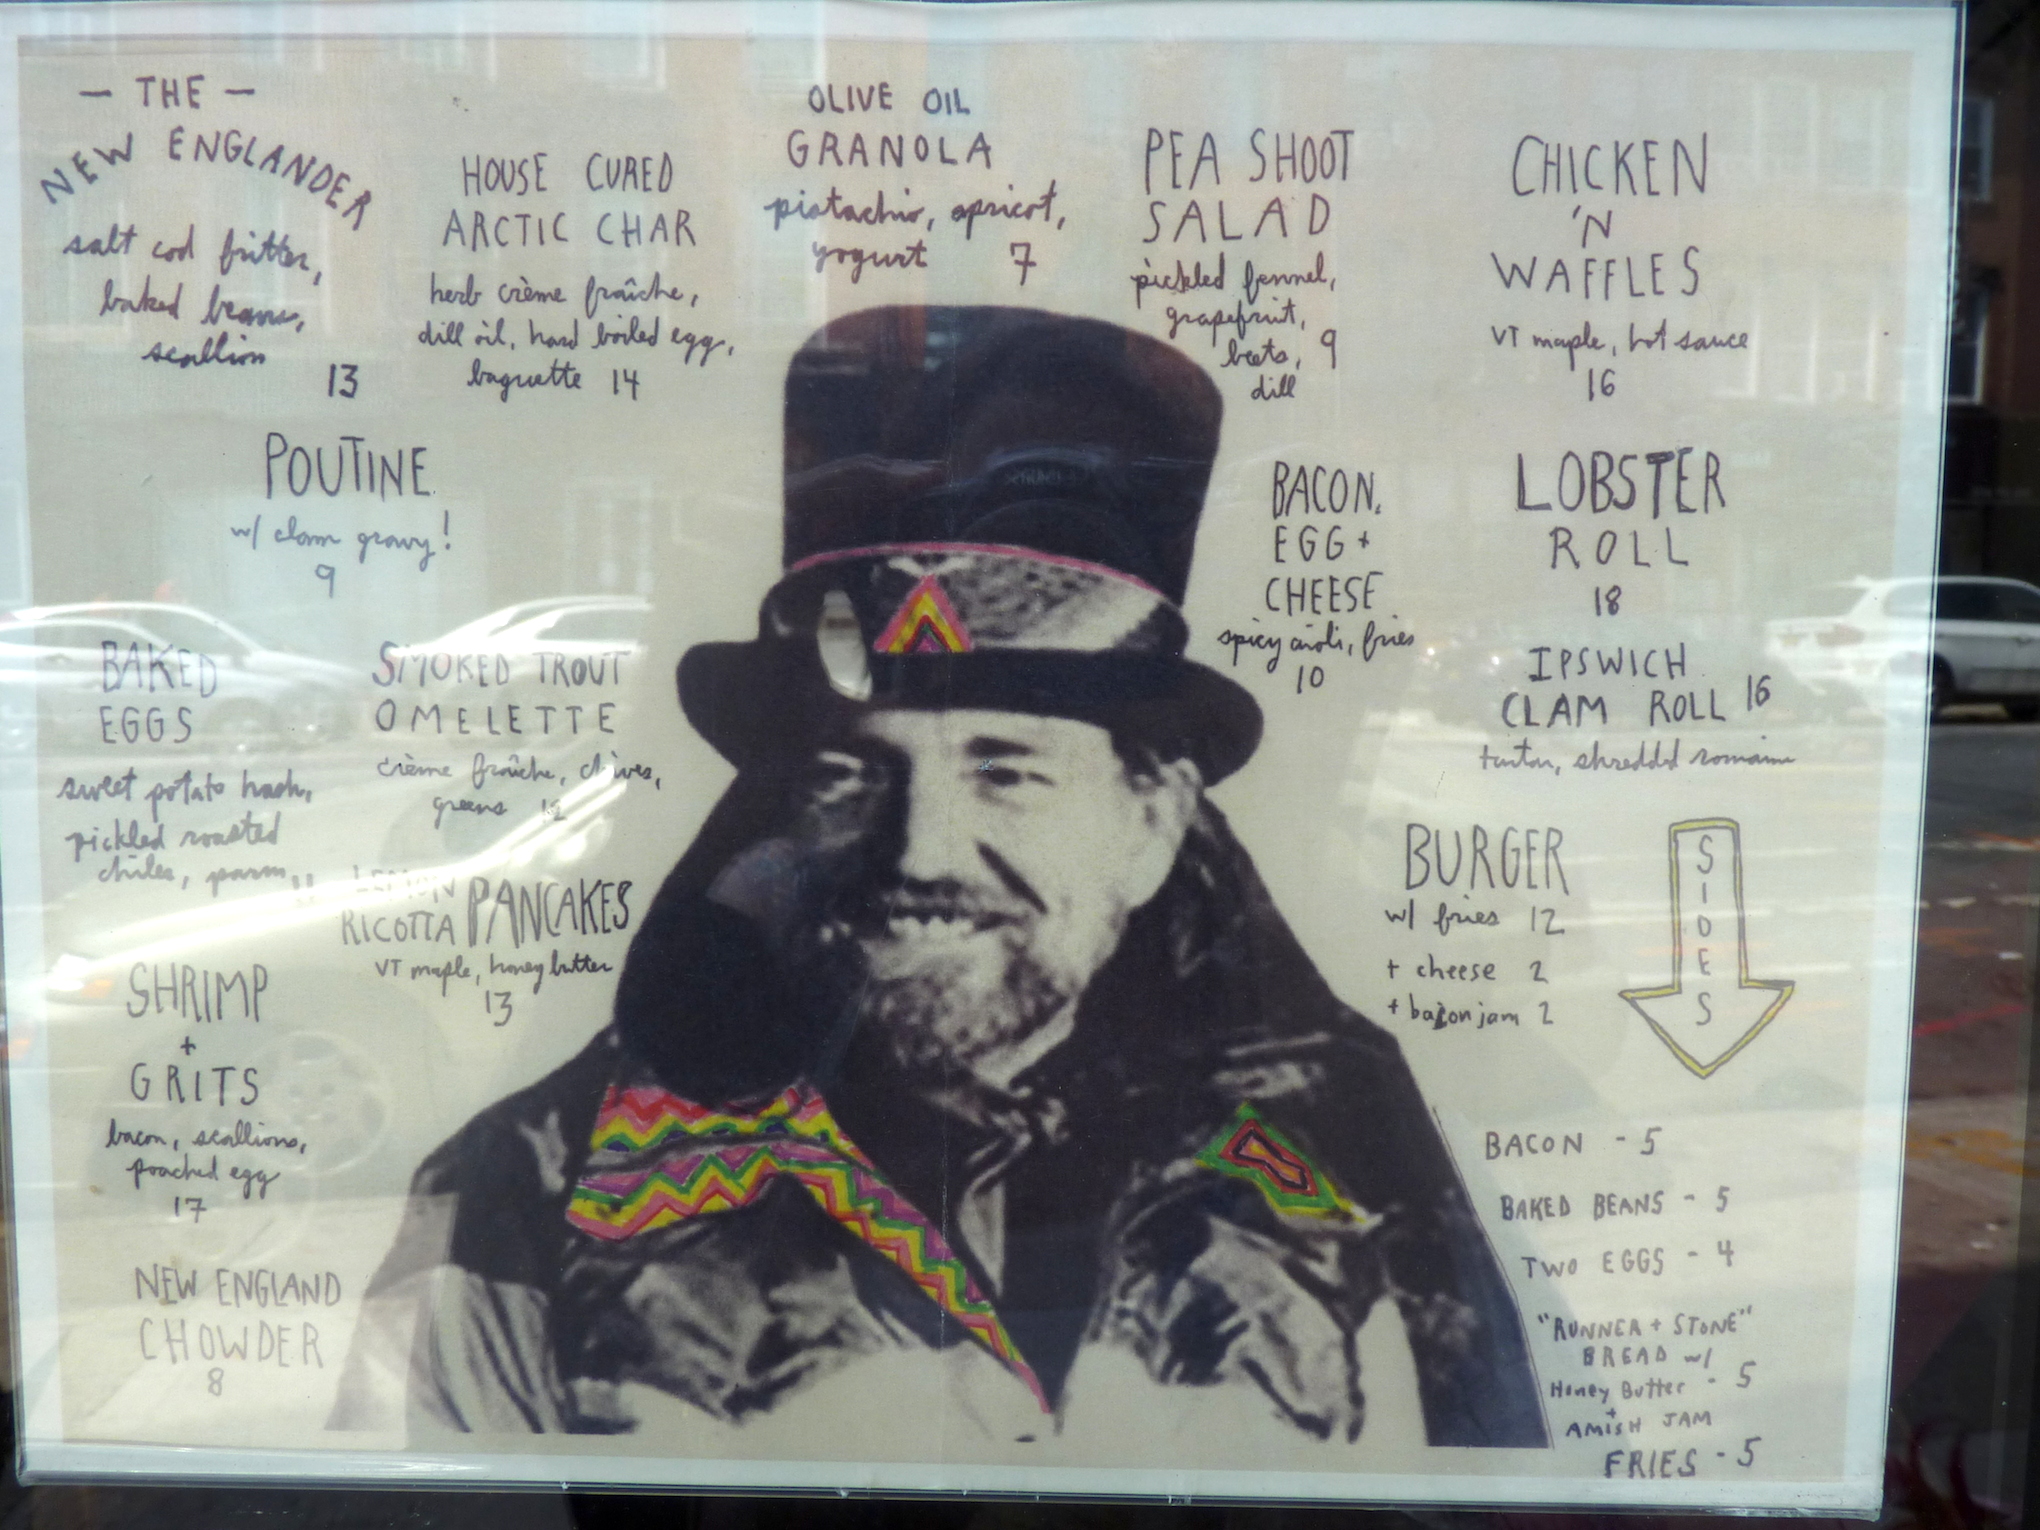 - THE -
NEW ENGLANDER
salt cod fritter,
baked beans,
scallion
13
HOUSE CURED
ARCTIC CHAR
herb crème fraîche,
dill oil, hard boiled egg,
baguette 14
OLIVE OIL
GRANOLA
pistachio, apricot,
yogurt 7
PEA SHOOT
SALAD
pickled fennel,
grapefruit,
beets, 9
dill
CHICKEN
'N
WAFFLES
VT maple, hot sauce
16
POUTINE
w/ clam gravy!
9
BACON,
EGG +
CHEESE
spicy aioli, fries
10
LOBSTER
ROLL
18
IPSWICH
CLAM ROLL 16
tartar, shredded romaine
BAKED
EGGS
sweet potato hash,
pickled roasted
chiles, parm, 11
SMOKED TROUT
OMELETTE
crème fraîche, chives,
greens 12
LEMON
RICOTTA PANCAKES
VT maple, honey butter
13
BURGER
w/ fries 12
+ cheese 2
+ bacon jam 2
SIDES
SHRIMP
+
GRITS
bacon, scallions,
poached egg
17
NEW ENGLAND
CHOWDER
8
BACON - 5
BAKED BEANS - 5
TWO EGGS - 4
"RUNNER + STONE"
BREAD w/
Honey Butter - 5
+
AMISH JAM
FRIES - 5